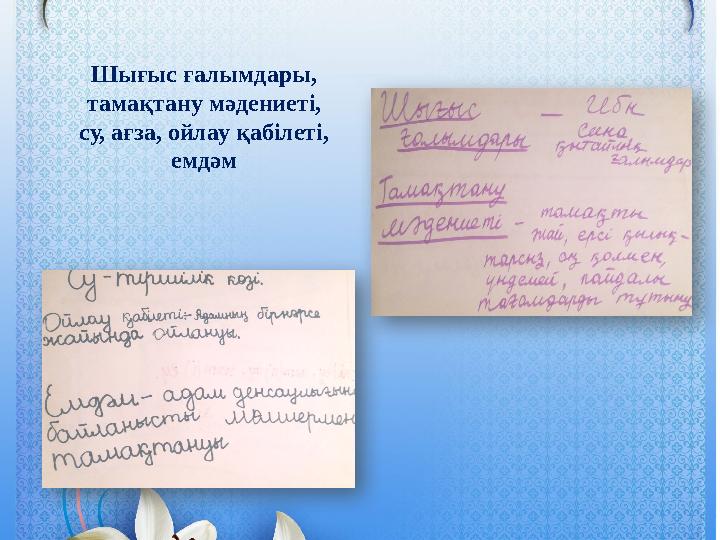 Шығыс ғалымдары,
тамақтану мәдениеті,
су, ағза, ойлау қабілеті,
емдәм
Шығыс — Ибн
ғалымдары Сина
қытайлық
ғалымдар
Тамақтану
мәдениеті - тамақты
жай, ерсі қылық-
тарсыз, оң қолмен,
үндемей, пайдалы
тағамдарды тұтыну
Су - тіршілік көзі.
Ойлау қабілеті:- Адамның бірнәрсе
жайында ойлануы.
Емдәм - адам денсаулығына
байланысты мөлшермен
тамақтануы